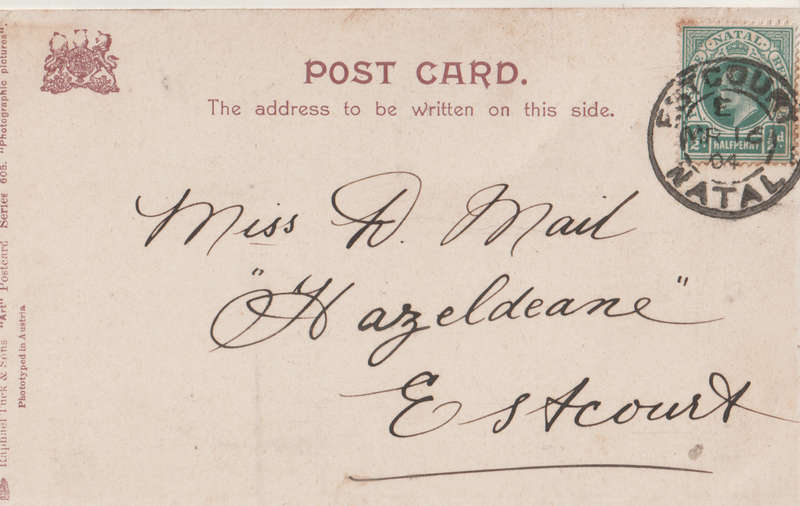 POST CARD.
The address to be written on this side.
NATAL
HALFPENNY
ESTCOURT
E
MR 12
04
NATAL
Miss D. Mail
"Hazeldeane"
Estcourt
Raphael Tuck & Sons "Art" Postcard Series 605. "Photographic pictures".
Phototyped in Austria.